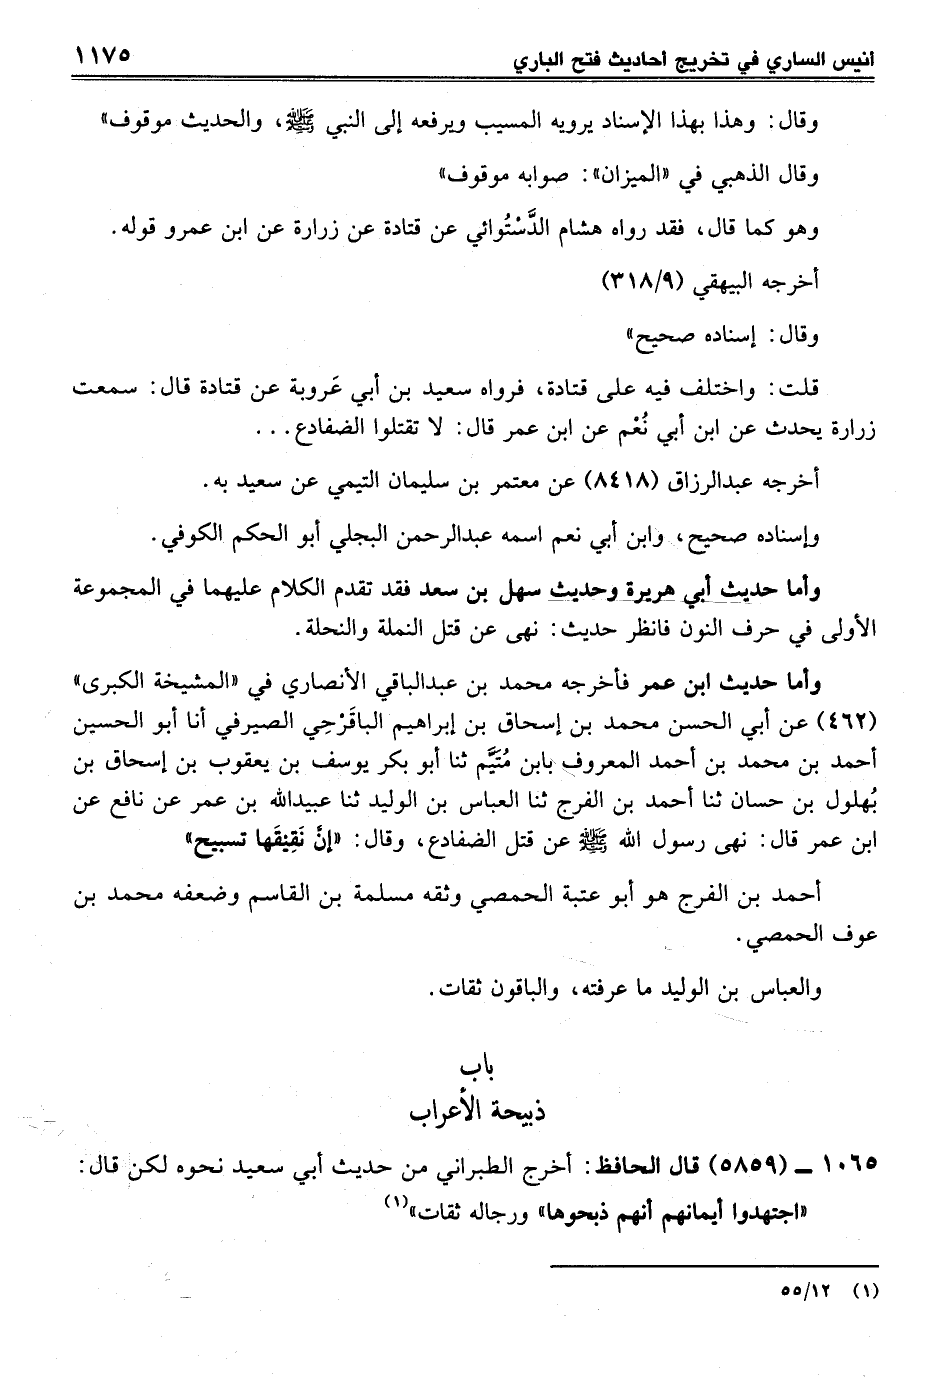 أنيس الساري في تخريج أحاديث فتح الباري ١١٧٥
وقال: وهذا بهذا الإسناد يرويه المسيب ويرفعه إلى النبي ﷺ، والحديث موقوف»
وقال الذهبي في «الميزان»: صوابه موقوف»
وهو كما قال، فقد رواه هشام الدَّسْتُوائي عن قتادة عن زرارة عن ابن عمرو قوله.
أخرجه البيهقي (٣١٨/٩)
وقال: إسناده صحيح»
قلت: واختلف فيه على قتادة، فرواه سعيد بن أبي عَروبة عن قتادة قال: سمعت
زرارة يحدث عن ابن أبي نُعْم عن ابن عمر قال: لا تقتلوا الضفادع...
أخرجه عبدالرزاق (٨٤١٨) عن معتمر بن سليمان التيمي عن سعيد به.
وإسناده صحيح، وابن أبي نعم اسمه عبدالرحمن البجلي أبو الحكم الكوفي.
وأما حديث أبي هريرة وحديث سهل بن سعد فقد تقدم الكلام عليهما في المجموعة
الأولى في حرف النون فانظر حديث: نهى عن قتل النملة والنحلة.
وأما حديث ابن عمر فأخرجه محمد بن عبدالباقي الأنصاري في «المشيخة الكبرى»
(٤٦٢) عن أبي الحسن محمد بن إسحاق بن إبراهيم الباقَرْحِي الصيرفي أنا أبو الحسين
أحمد بن محمد بن أحمد المعروف بابن مُتَيَّم ثنا أبو بكر يوسف بن يعقوب بن إسحاق بن
بُهلول بن حسان ثنا أحمد بن الفرج ثنا العباس بن الوليد ثنا عبيدالله بن عمر عن نافع عن
ابن عمر قال: نهى رسول الله ﷺ عن قتل الضفادع، وقال: «إنَّ نَقِيْقَها تسبيح»
أحمد بن الفرج هو أبو عتبة الحمصي وثقه مسلمة بن القاسم وضعفه محمد بن
عوف الحمصي.
والعباس بن الوليد ما عرفته، والباقون ثقات.
باب
ذبيحة الأعراب
١٠٦٥ ــ (٥٨٥٩) قال الحافظ: أخرج الطبراني من حديث أبي سعيد نحوه لكن قال:
«اجتهدوا أيمانهم أنهم ذبحوها» ورجاله ثقات»(١)
(١) ٥٥/١٢